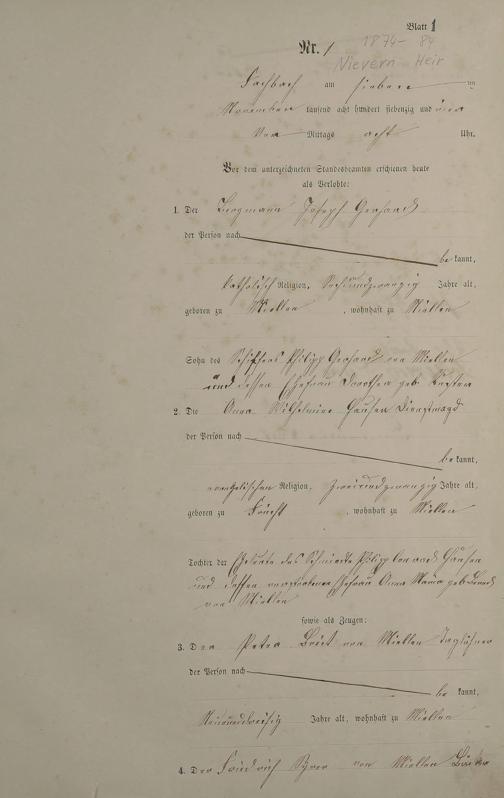 Blatt 1
Nr. 1 1874–84
Nievern Heir
Fachbach am sieben
November tausend acht hundert siebenzig und vier
Vor Mittags acht Uhr.
Vor dem unterzeichneten Standesbeamten erschienen heute
als Verlobte:
1. Der Bergmann Joseph Gerhard
der Person nach
be kannt,
katholisch Religion, Sechsundzwanzig Jahre alt,
geboren zu Miellen, wohnhaft zu Miellen
Sohn des Schiffers Philipp Gerhard von Miellen
und dessen Ehefrau Dorothea geb.
2. Die Anna Wilhelmine Dienstmagd
der Person nach
be kannt,
evangelischen Religion, zweiundzwanzig Jahre alt,
geboren zu Frücht, wohnhaft zu Miellen
Tochter der Eheleute des Philipp
und dessen verstorbenen Ehefrau Anna Maria geb.
von Miellen
sowie als Zeugen:
3. Der Peter von Miellen Taglöhner
der Person nach
be kannt,
Neununddreißig Jahre alt, wohnhaft zu Miellen
4. Der Friedrich von Miellen